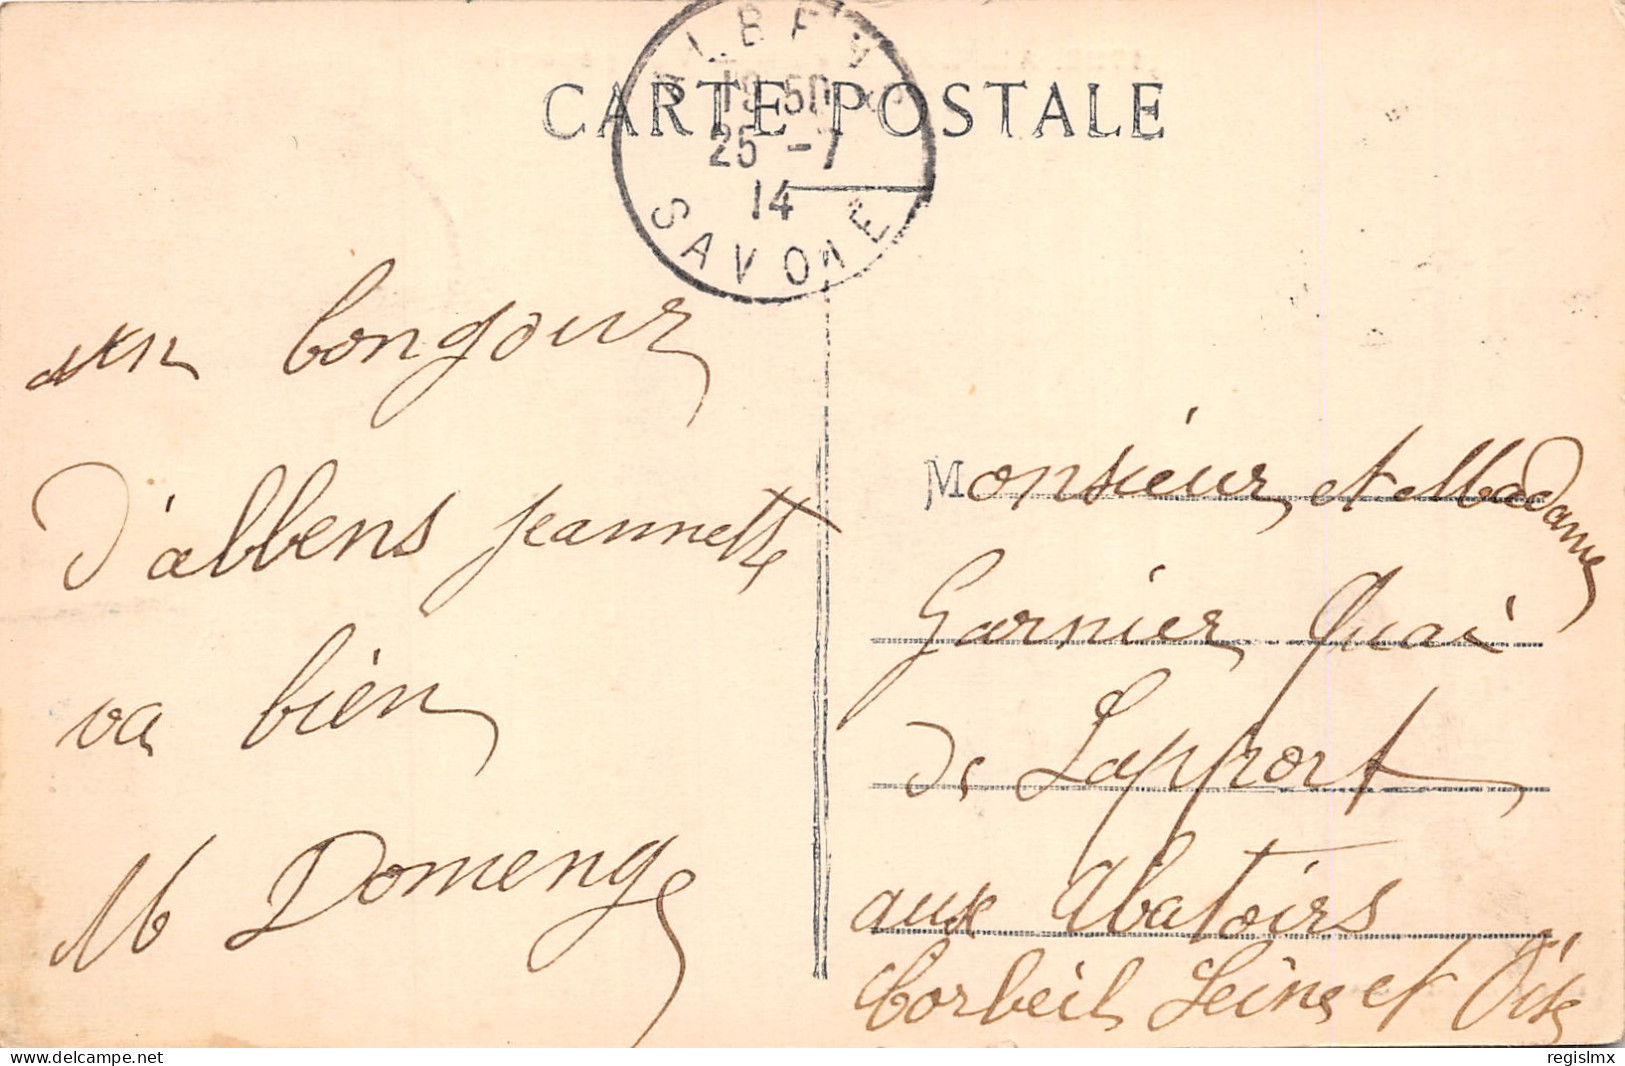 ALBENS
CARTE POSTALE
19 50
25 - 7
14
SAVOIE
un bongour
D'albens jeannette
va bien
M Domenge
Monsieur et Madame
Garnier Quai
de Lapport
aux Abatoirs
Corbeil Seine et Oise
regislmx